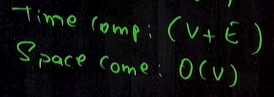 Time comp: (V+E)
Space come: O(V)